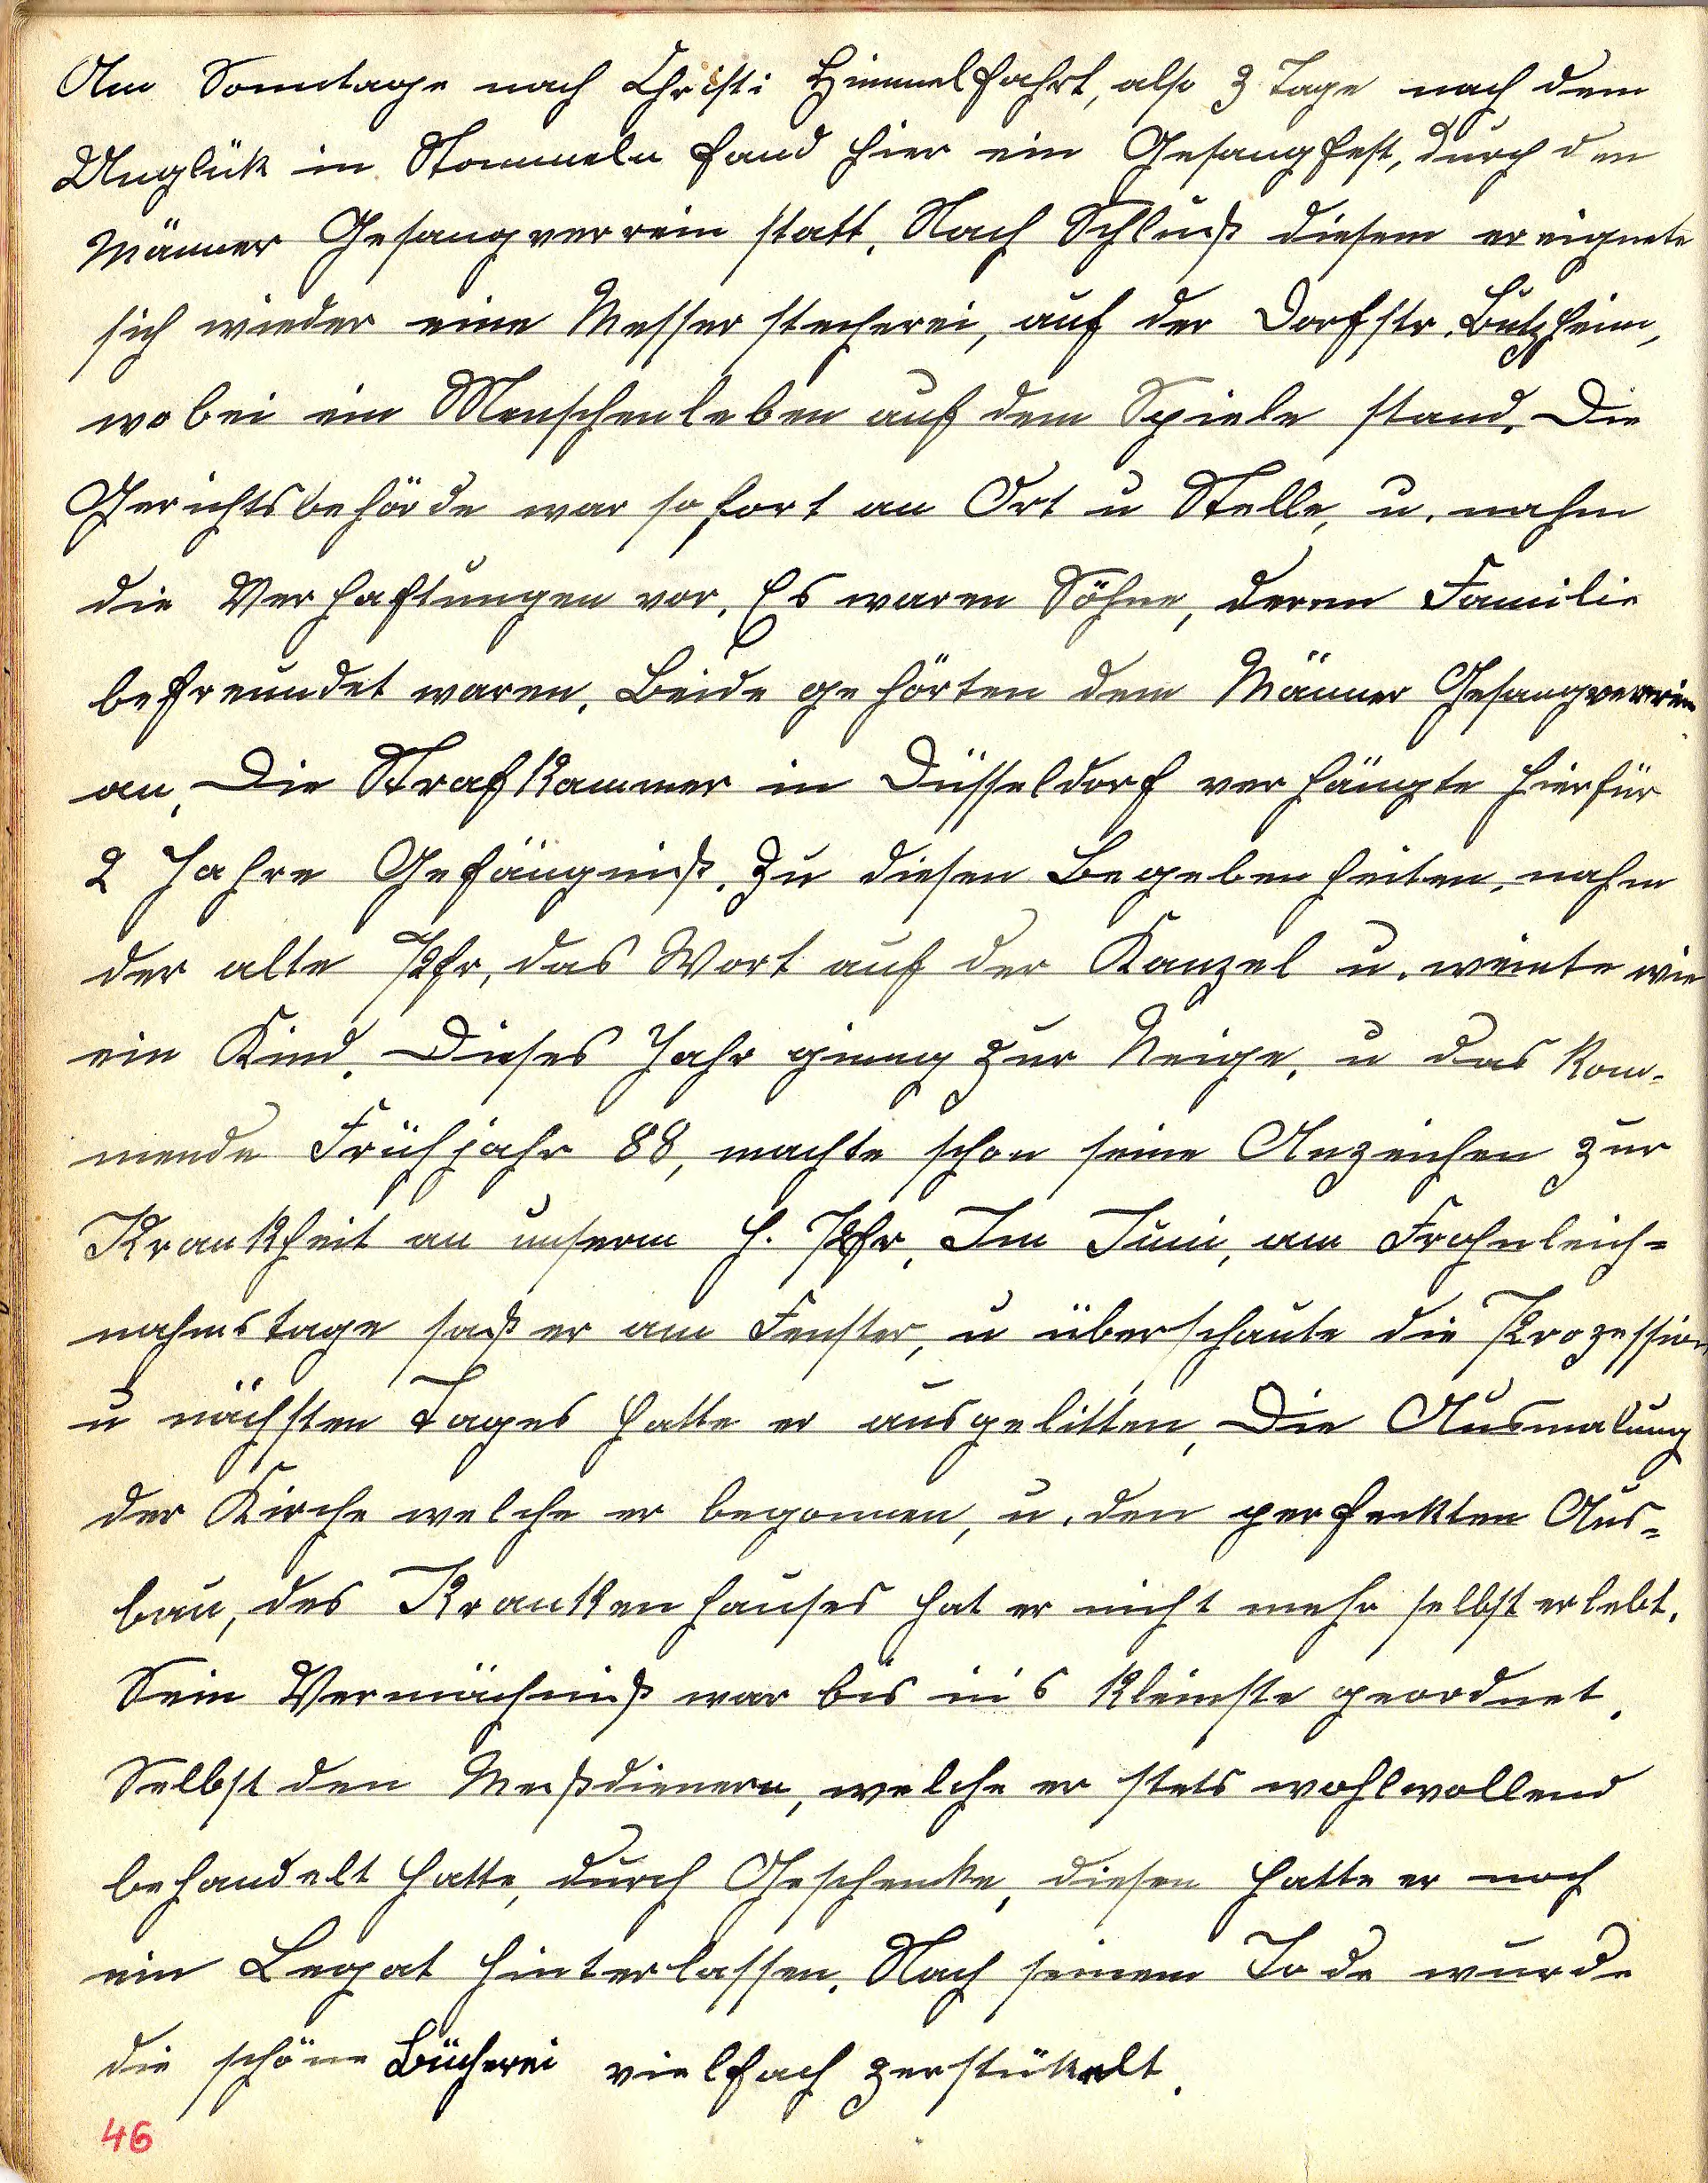 Am Sonntage nach Christi Himmelfahrt, also 3 Tage nach dem
Unglük in Stommeln fand hier ein Gesangfest, durch den
Männer Gesangverrein statt. Nach Schluß diesem ereignete
sich wieder eine Messerstecherei, auf der Dorfstr. Butzheim,
wobei ein Menschenleben auf dem Spiele stand. Die
Gerichtsbehörde war sofort an Ort u Stelle, u. nahm
die Verhaftungen vor. Es waren Söhne, deren Familie
befreundet waren. Beide gehörten dem Männer Gesangverrein
an. Die Strafkammer in Düsseldorf verhängte hierfür
2 Jahre Gefängniß. Zu diesen Begebenheiten, nahm
der alte Pfr, das Wort auf der Kanzel u. weinte wie
ein Kind. Dieses Jahr ginng zur Neige, u das kom-
mende Frühjahr 88, machte schon seine Anzeichen zur
Krankheit an unserm H. Pfr, Im Juni, am Frohnleich=
nahmstage saß er am Fenster, u überschaute die Prozession
u nächsten Tages hatte er ausgelitten, Die Ausmalung
der Kirche welche er begonnen, u. den perfekten Aus=
bau, des Krankenhauses hat er nicht mehr selbst erlebt.
Sein Vermächniß war bis in's kleinste geordnet.
Selbst den Meßdienern, welche er stets wohlwollend
behandelt hatte, durch Geschenke, diesen hatte er noch
ein Legat hinterlassen. Nach seinem Tode wurde
die schöne Bücherei vielfach zerstükelt.
46